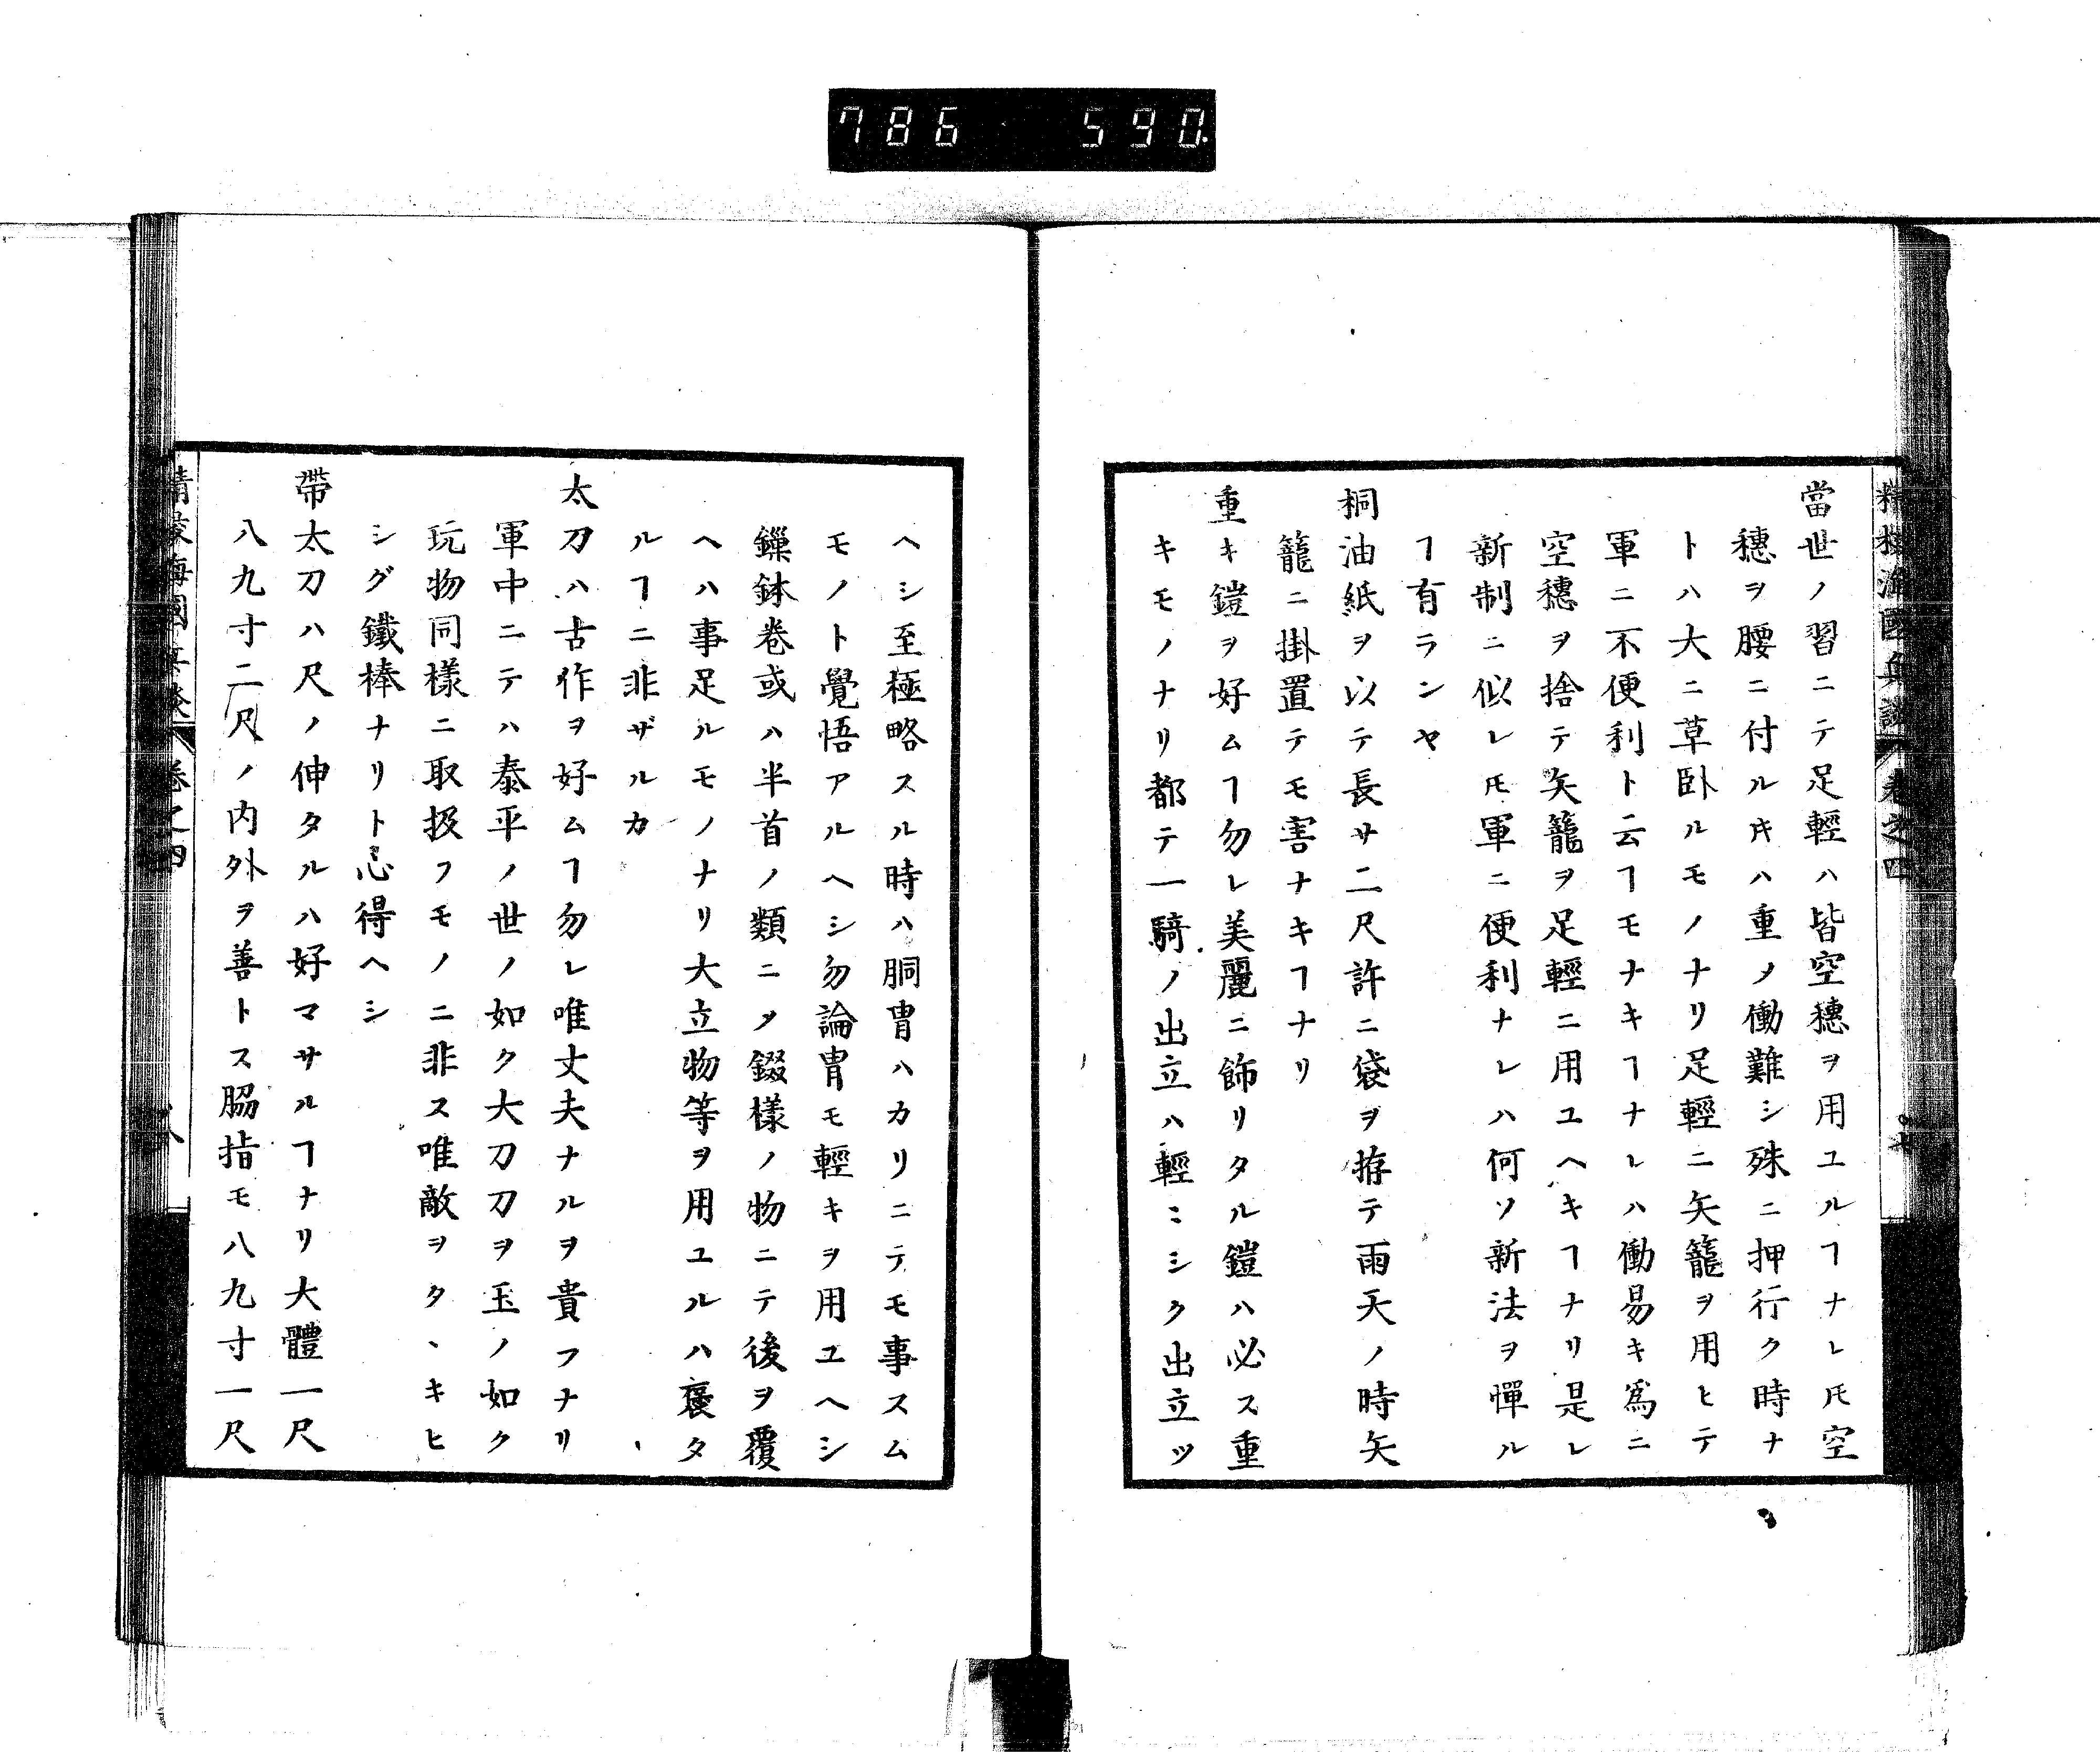 786 590.
精校海國兵談 卷之四
當世ノ習ニテ足輕ハ皆空穗ヲ用ユルヿナレ𪜈空
穗ヲ腰ニ付ルキハ重ノ働難シ殊ニ押行ク時ナ
トハ大ニ草臥ルモノナリ足輕ニ矢籠ヲ用ヒテ
軍ニ不便利ト云ヿモナキヿナレハ働易キ爲ニ
空穗ヲ捨テ矢籠ヲ足輕ニ用ユヘキヿナリ是レ
新制ニ似レ𪜈軍ニ便利ナレハ何ソ新法ヲ憚ル
ヿ有ランヤ
桐油紙ヲ以テ長サ二尺許ニ袋ヲ拵テ雨天ノ時矢
籠ニ掛置テモ害ナキヿナリ
重キ鎧ヲ好ムヿ勿レ美麗ニ飾リタル鎧ハ必ス重
キモノナリ都テ一騎ノ出立ハ輕ニシク出立ツ
ヘシ至極略スル時ハ胴冑ハカリニテモ事スム
モノト覺悟アルヘシ勿論冑モ輕キヲ用ユヘシ
鏁鉢卷或ハ半首ノ類ニメ錣樣ノ物ニテ後ヲ覆
ヘハ事足ルモノナリ大立物等ヲ用ユルハ褒タ
ルヿニ非ザルカ
太刀ハ古作ヲ好ムヿ勿レ唯丈夫ナルヲ貴フナリ
軍中ニテハ泰平ノ世ノ如ク大刀刀ヲ玉ノ如ク
玩物同樣ニ取扱フモノニ非ス唯敵ヲタヽキヒ
シグ鐵棒ナリト心得ヘシ
帶太刀ハ尺ノ伸タルハ好マサルヿナリ大體一尺
八九寸二尺ノ内外ヲ善トス脇指モ八九寸一尺
精校海國兵談 卷之四 八